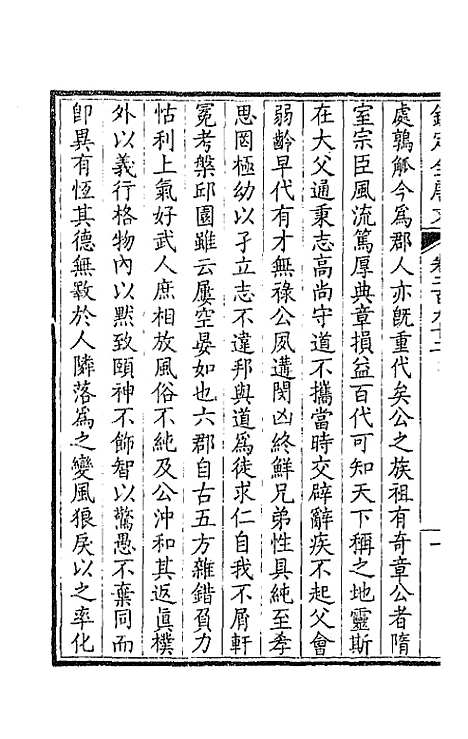 欽定全唐文 卷二百九十二 一
處鶉觚今爲郡人亦旣重代矣公之族祖有奇章公者隋
室宗臣風流篤厚典章損益百代可知天下稱之地靈斯
在大父通秉志高尚守道不攜當時交辟辭疾不起父會
弱齡早代有才無祿公夙遘閔凶終鮮兄弟性具純至孝
思罔極幼以孑立志不違邦與道爲徒求仁自我不屑軒
冕考槃邱園雖云屢空晏如也六郡自古五方雜錯負力
怙利上氣好武人庶相放風俗不純及公沖和其返眞樸
外以義行格物內以默致頤神不飾智以驚愚不棄同而
卽異有恆其德無斁於人隣落爲之變風狼戾以之率化